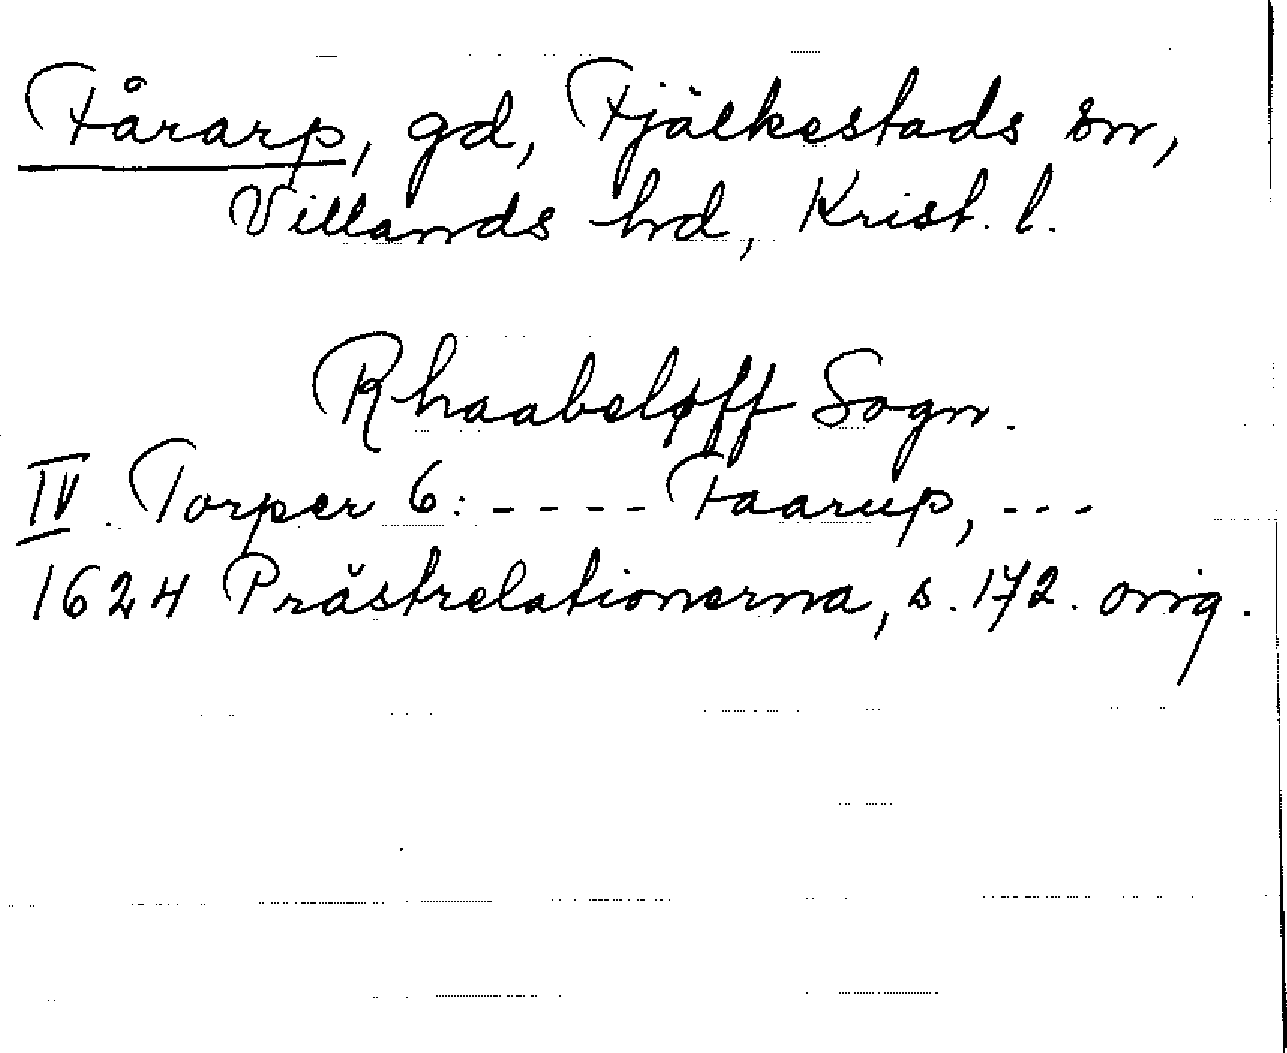 Fårarp, gd, Fjälkestads sn,
Villands hd, Krist. l.
Rhaabeløff Sogn.
IV. Torper 6: - - - - Faarup, - - -
1624 Prästrelationerna, s. 172. orig.